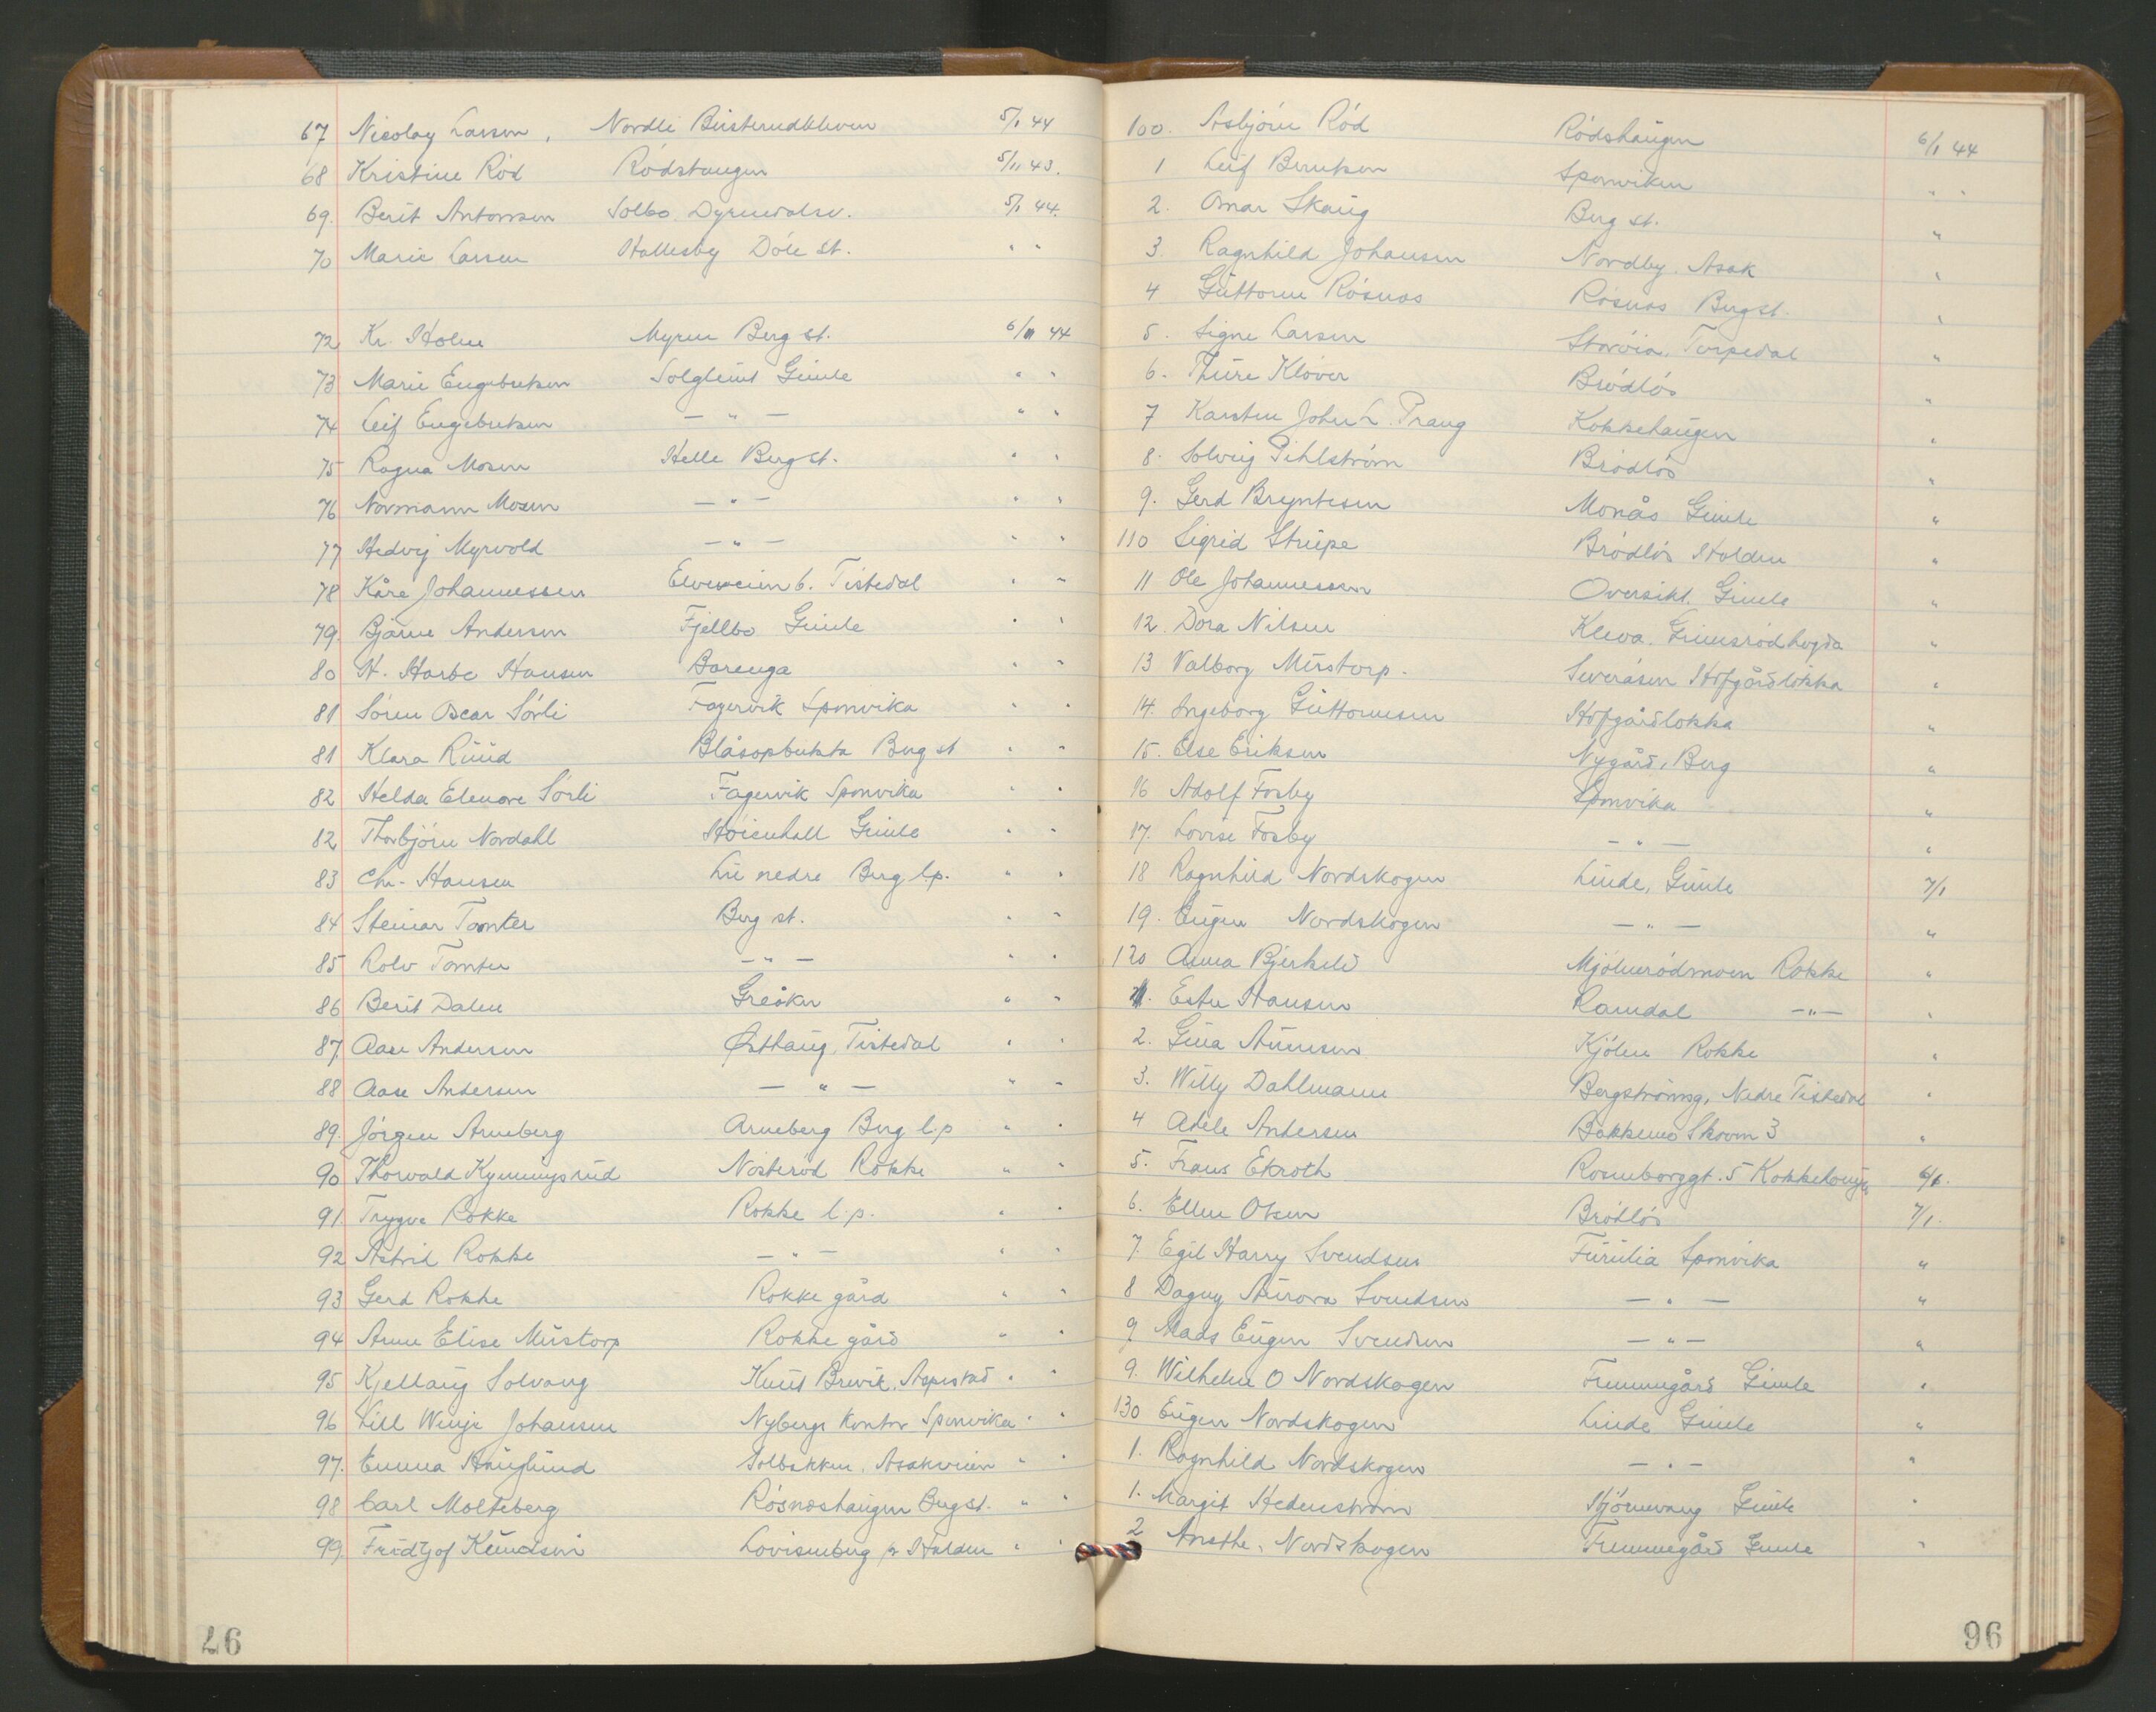 67 Nicolay Larsen, Nordli Busterudkleven 5/1 44
68 Kristine Rød Rødshaugen 5/11 43.
69. Berit Antonsen Solbo Dyrendalsv. 5/1 44.
70 Marie Larsen Hallesby Døle st. " "
72 Kr. Holm Myren Berg st. 6/1 44
73 Marie Engebretsen Solgleint Gimle " "
74 Leif Engebretsen — " — " "
75 Ragna Mosen Helle Berg st. " "
76 Normann Mosen — " — " "
77 Hedvig Myrvold — " — " "
78 Kåre Johannessen Elveveien 6. Tistedal " "
79. Bjarne Andersen Fjellbo Gimle " "
80 H. Harbo Hansen Borenga " "
81 Sören Oscar Sörli Fagervik Sponvika " "
81 Klara Ruud Blåsopbukta Berg st " "
82 Helda Elenore Sörli Fagervik Sponvika " "
82 Thorbjörn Nordahl Höienhall Gimle " "
83 Chr. Hansen Lie nedre Berg l.p. " "
84 Steinar Tomter Berg st. " "
85 Rolv Tomter — " — " "
86 Berit Dalen Greåker " "
87 Aase Andersen Østhaug, Tistedal " "
88 Aase Andersen — " — " "
89. Jörgen Arneberg Arneberg Berg l.p " "
90 Thorvald Kynningsrud Nösteröd Rokke " "
91 Trygve Rokke Rokke l.p. " "
92 Astrid Rokke — " — " "
93 Gerd Rokke Rokke gård " "
94 Anne Elise Mustorp Rokke gård " "
95 Kjellaug Solvang Knut Brevik, Aspestad " "
96 Lill Wenje Johansen Nybergs kontor Sponvika " "
97. Emma Hauglund Solbakken, Asakveien " "
98 Carl Molteberg Rösneshaugen Berg st. " "
99. Fridtjof Knudsen Lovisenberg pr Halden " "
97
100. Asbjörn Röd Rödshaugen 6/1 44
1 Leif Berntsen Sponviken " "
2. Omar Skaug Berg st. "
3. Ragnhild Johansen Nordby. Asak "
4 Guttorm Rösnes Rösnes Berg st. "
5. Signe Larsen Torpedal "
6. Thure Klöver Brödlös "
7 Karsten John L. Prang Kokkehaugen "
8. Solveig Pihlström Brödlös "
9. Gerd Bryntesen Monås Gimle "
110 Sigrid Strupe Brödlös Halden "
11 Ole Johannessen Oversikt. Gimle "
12. Dora Nilsen Kleva. Grimsrödhøgda "
13 Valborg Mustorp. Severåsen Hofgårdløkka "
14. Ingeborg Guttormsen Hofgårdløkka "
15. Else Eriksen Nygård, Berg "
16 Adolf Fosby Sponvika "
17. Lovise Fosby — " — "
18 Ragnhild Nordskogen Linde, Gimle 7/1
19. Eugen Nordskogen — " — "
120 Anna Bjerkeld Mjölnerödmoen Rokke "
1. Ester Hansen Ramdal — " — "
2. Gina Amunsen Kjölen Rokke "
3. Willy Dahlmann Bergströmsg, Nedre Tistedal "
4 Adele Andersen Bakkemo Skoven 3 "
5. Frans Ekroth Rosenborggt. 5 Kokkehaugen 6/1.
6. Ellen Olsen Brödlös 7/1.
7. Egil Harry Svendsen Furulia Sponvika "
8 Dagny Aurora Svendsen — " — "
9 Mads Eugen Svendsen — " — "
9. Wilhelm O Nordskogen Fremmegård Gimle "
130 Eugen Nordskogen Linde Gimle "
1. Ragnhild Nordskogen — " — "
1. Margit Hedenström Gimle "
2 Nordskogen Fremmegård Gimle "
96